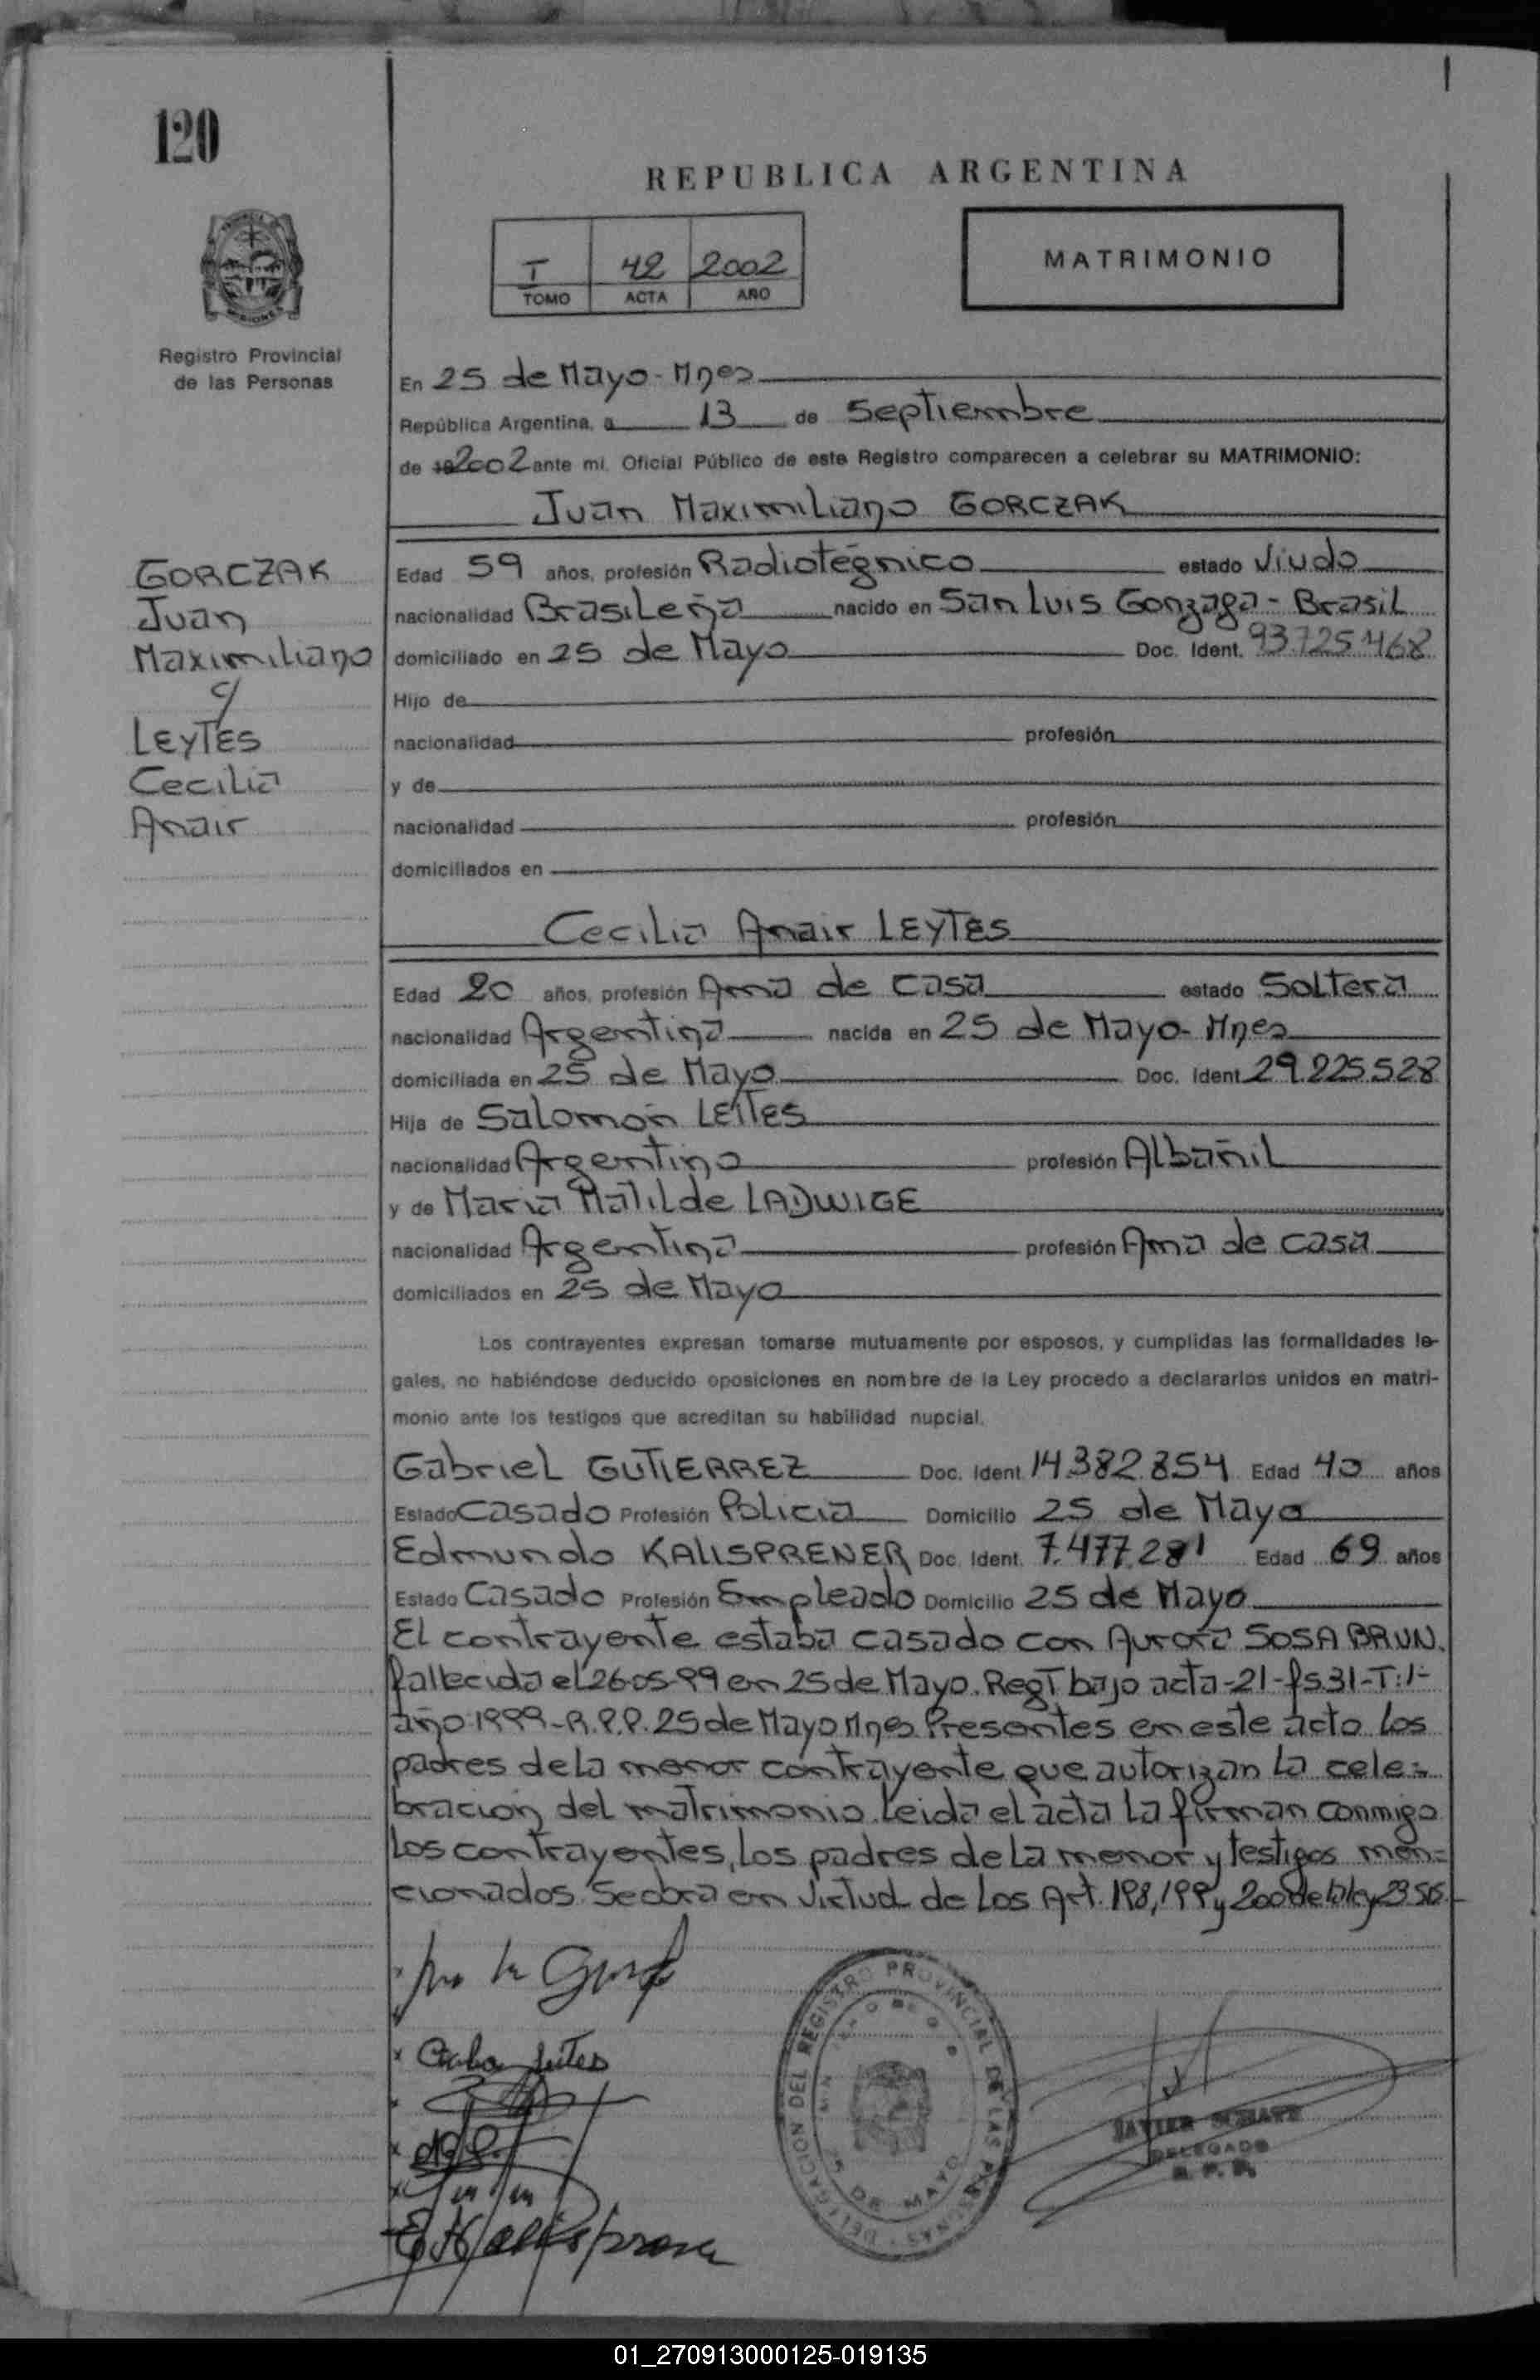 120
REPUBLICA ARGENTINA
I 42 2002
TOMO ACTA AÑO
MATRIMONIO
Registro Provincial
de las Personas
En 25 de Mayo - Mnes
República Argentina, a 13 de Septiembre
de 19 2002 ante mi, Oficial Público de este Registro comparecen a celebrar su MATRIMONIO:
Juan Maximiliano GORCZAK
GORCZAK
Juan
Maximiliano
y
LEYTES
Cecilia
Anair
Edad 59 años, profesión Radiotégnico estado Viudo
nacionalidad Brasileña nacido en San Luis Gonzaga - Brasil
domiciliado en 25 de Mayo Doc. Ident. 93.725.468
Hijo de
nacionalidad profesión
y de
nacionalidad profesión
domiciliados en
Cecilia Anair LEYTES
Edad 20 años, profesión Ama de casa estado Soltera
nacionalidad Argentina nacida en 25 de Mayo - Mnes
domiciliada en 25 de Mayo Doc. Ident 29.225.528
Hija de Salomón LEITES
nacionalidad Argentino profesión Albañil
y de Maria Matilde LADWIGE
nacionalidad Argentina profesión Ama de casa
domiciliados en 25 de Mayo
Los contrayentes expresan tomarse mutuamente por esposos, y cumplidas las formalidades le-
gales, no habiéndose deducido oposiciones en nombre de la Ley procedo a declararlos unidos en matri-
monio ante los testigos que acreditan su habilidad nupcial.
Gabriel GUTIERREZ Doc. Ident 14.382.854 Edad 40 años
Estado Casado Profesión Policia Domicilio 25 de Mayo
Edmundo KALLSPRENER Doc. Ident. 7.477.281 Edad 69 años
Estado Casado Profesión Empleado Domicilio 25 de Mayo
El contrayente estaba casado con Aurora SOSA BRUN.
fallecida el 26-05-99 en 25 de Mayo. Regt bajo acta-21-fs.31-T:I-
año 1999-R.P.P. 25 de Mayo Mnes. Presentes en este acto los
padres de la menor contrayente que autorizan la cele=
bracion del matrimonio. Leida el acta la firman conmigo
los contrayentes, los padres de la menor y testigos men=
cionados. Se obra en virtud de los Art. 198, 199 y 200 de la ley 23515.
DELEGACION DEL REGISTRO PROVINCIAL DE LAS PERSONAS
25 DE MAYO
JAVIER
DELEGADO
R. P. P.
01_270913000125-019135